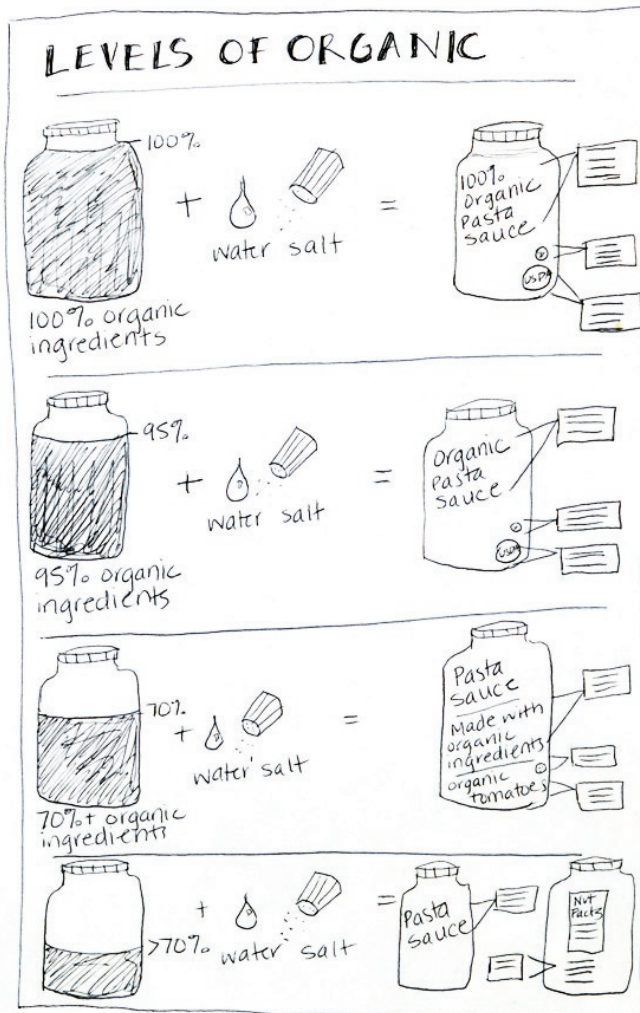 LEVELS OF ORGANIC
100%
+
water salt
=
100%
Organic
Pasta
sauce
USDA
100% organic
ingredients
95%
+
water salt
=
Organic
Pasta
sauce
USDA
95% organic
ingredients
70%
+
water salt
=
Pasta
sauce
Made with
organic
ingredients
organic
tomatoes
70%+ organic
ingredients
>70%
+
water salt
=
Pasta
sauce
Nut
Facts